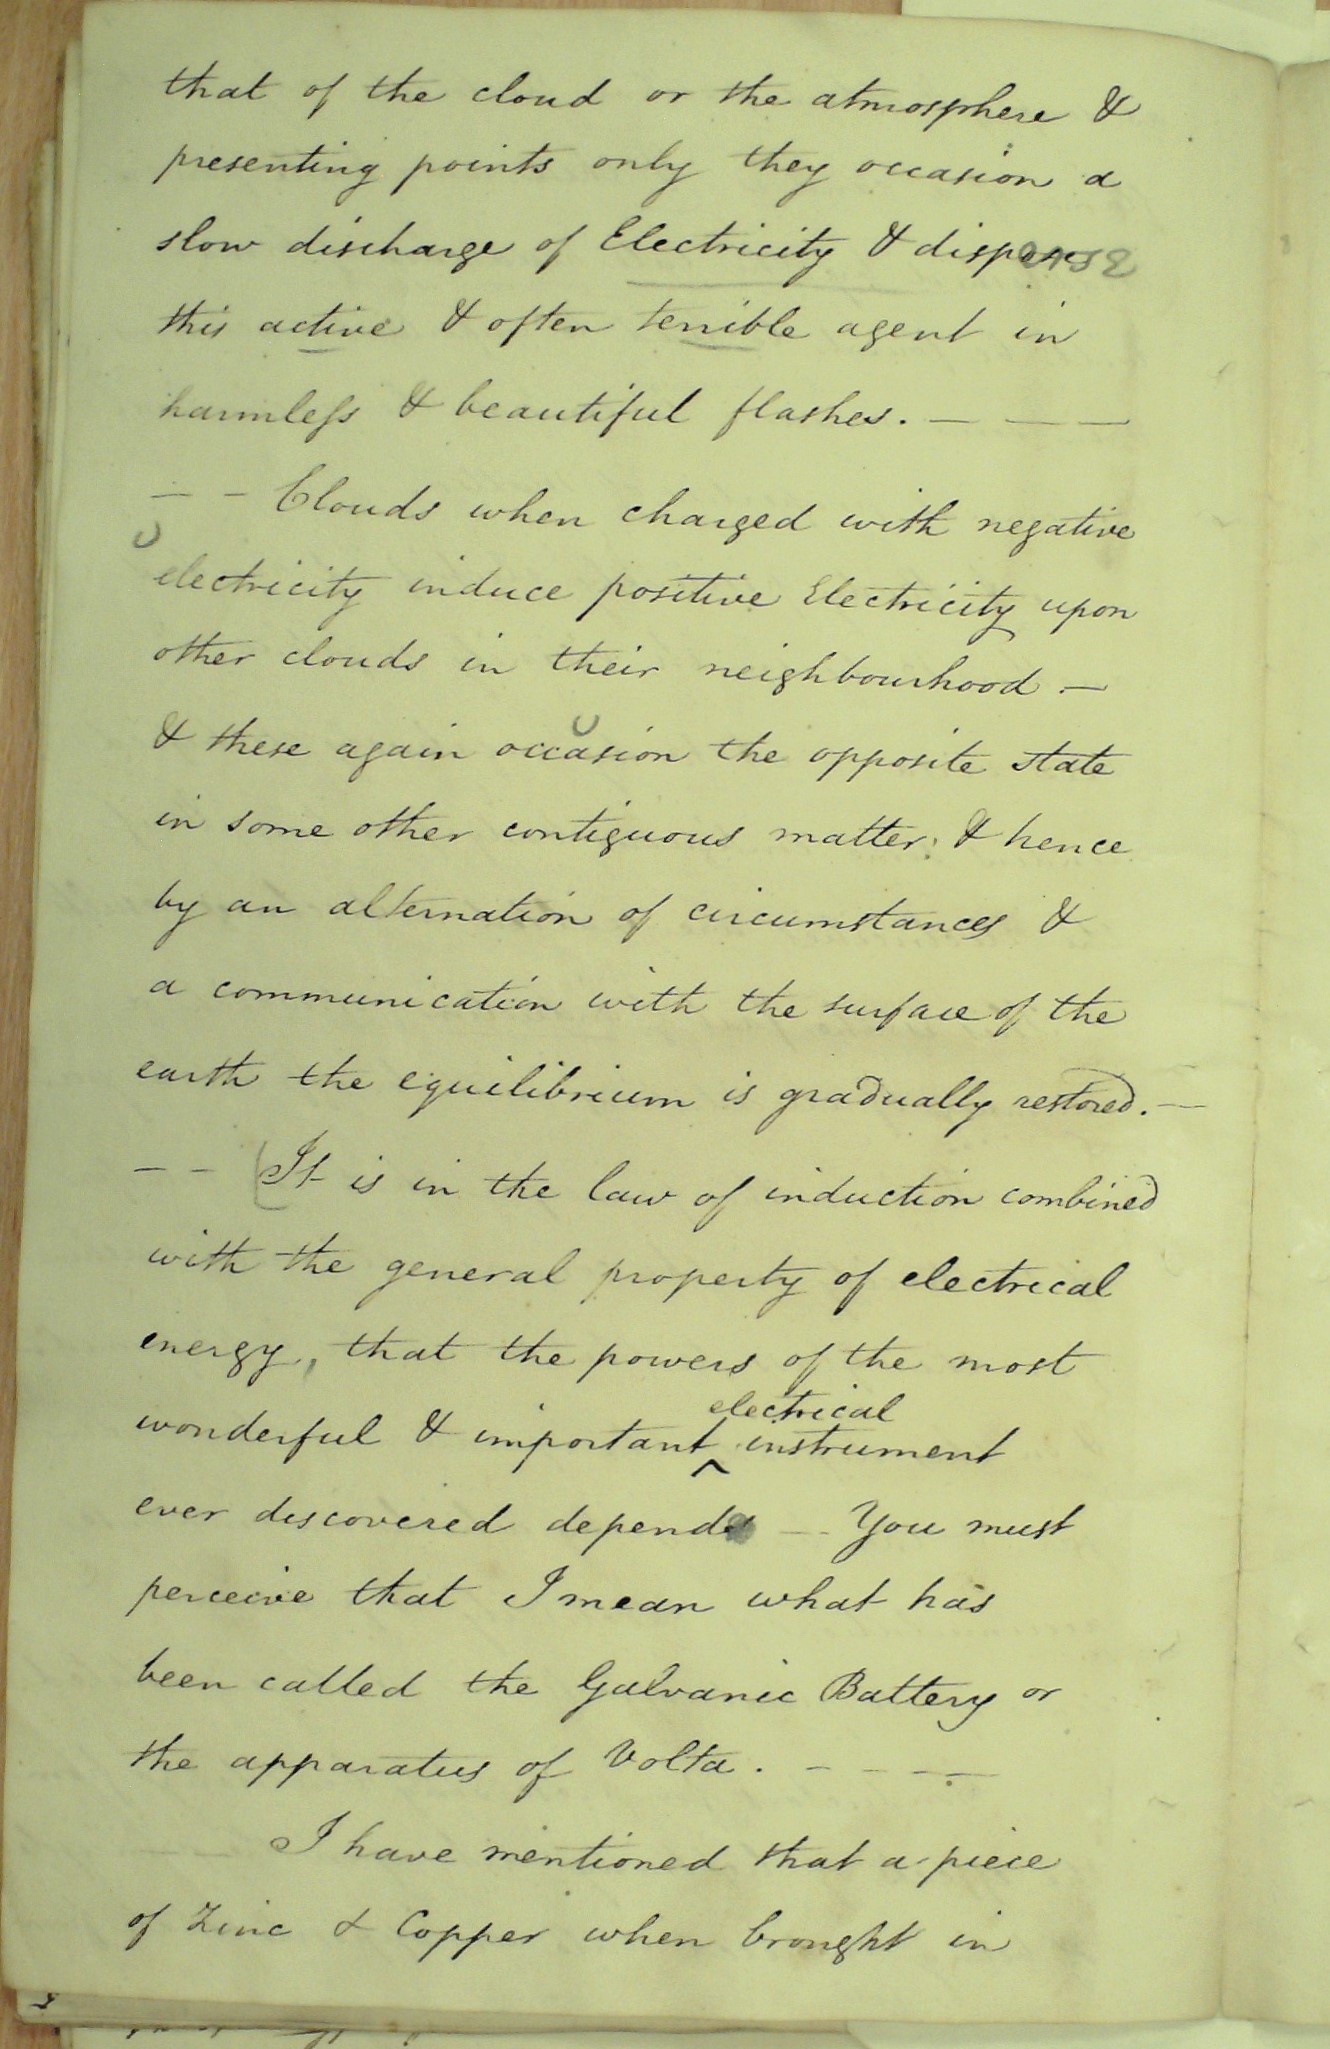 that of the cloud or the atmosphere &
presenting points only they occasion a
slow discharge of Electricity & disperse
this active & often terrible agent in
harmless & beautiful flashes. — — —
— – Clouds when charged with negative
electricity induce positive Electricity upon
other clouds in their neighbourhood –
& these again occasion the opposite state
in some other contiguous matter; & hence
by an alternation of circumstances &
a communication with the surface of the
earth the equilibrium is gradually restored. —
– – It is in the law of induction combined
with the general property of electrical
energy, that the powers of the most
electrical
wonderful & important ^ instrument
ever discovered depend — You must
perceive that I mean what has
been called the Galvanic Battery or
the apparatus of Volta. – – – —
I have mentioned that a piece
of Zinc & Copper when brought in